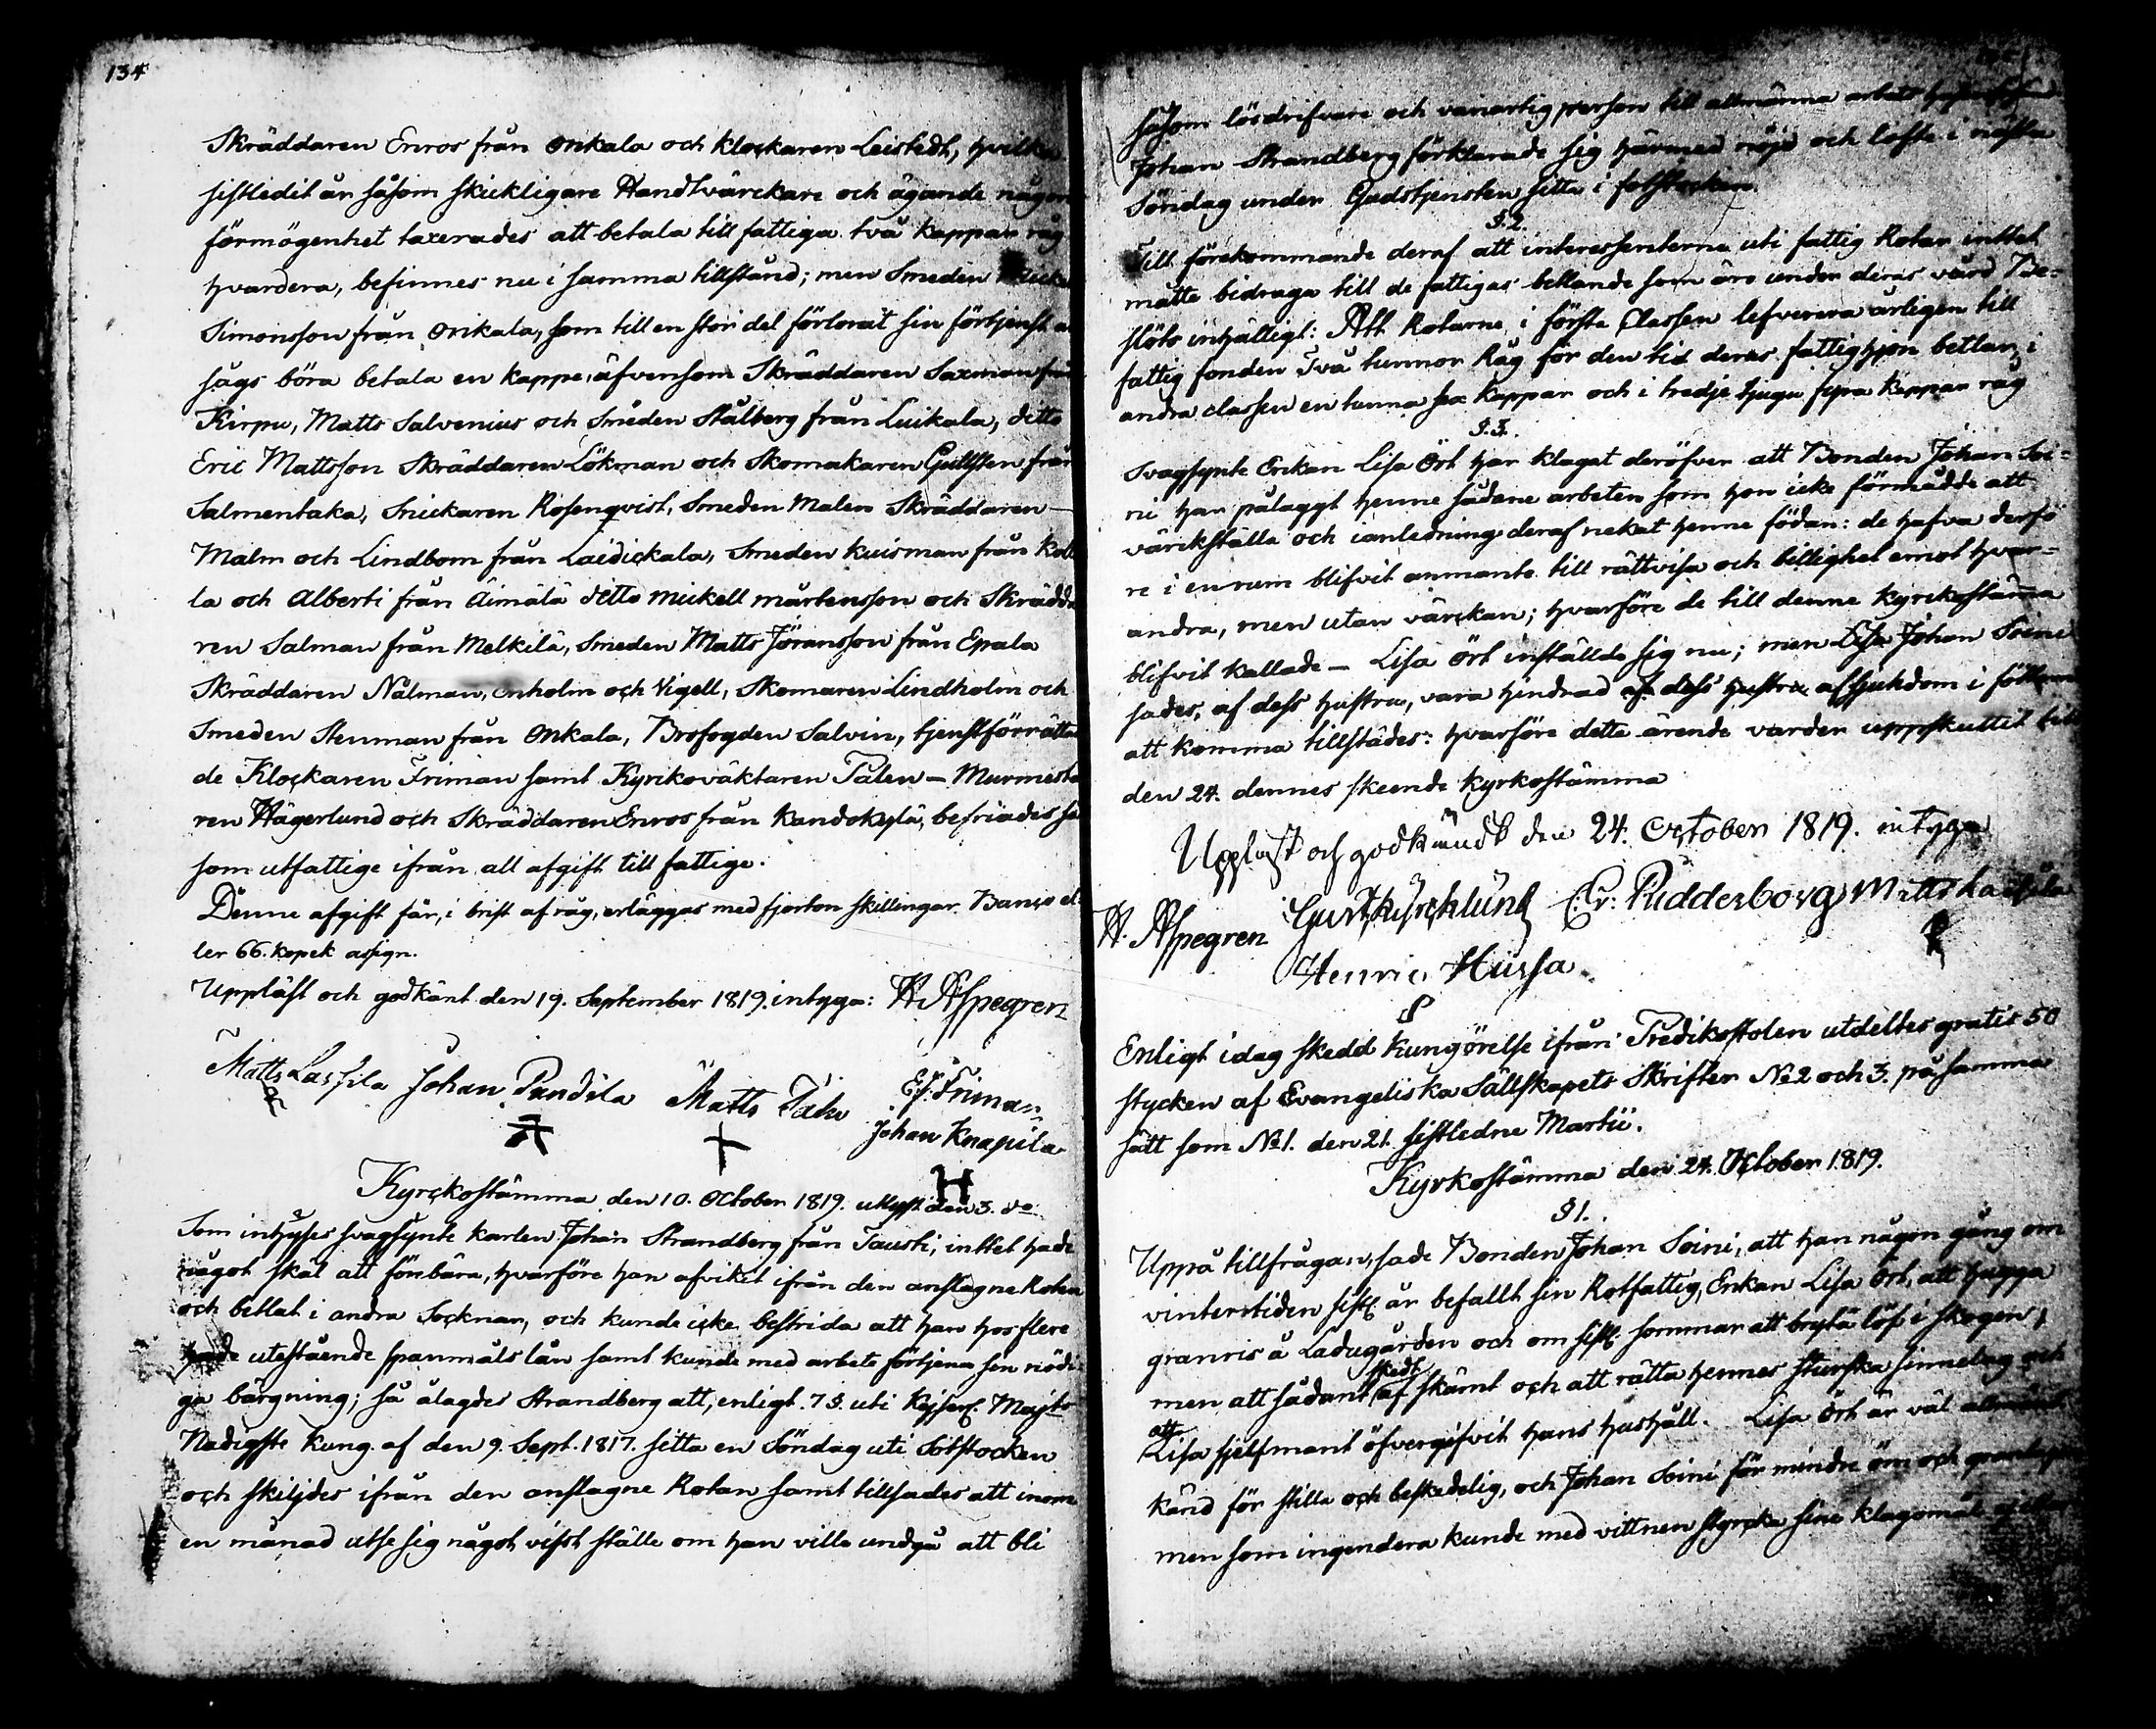 134
Skräddaren Enros från Onkala och klockaren Leistedt, hvilka
sistledit år såsom skickligare Handtvärckare och ägande någon
förmögenhet taxerades att betala till fattiga två kappar råg
hvardera, befinnes nu i samma tillstånd; men Smeden
Simonsson från Onkala, som till en stor del förlorat sin förtjenst
sågs böra betala en kappe, äfvensom Skräddaren Saxman från
Kirpu, Matts Salvenius och Smeden Stålberg från Luikala, ditto
Eric Mattsson Skräddaren Lökman och Skomakaren Gullsten från
Salmentaka, Snickaren Rosenqvist, Smeden Malen Skräddaren —
Malm och Lindbom från Laidickala, Smeden Kuisman från
la och Alberti från Äimälä ditto Mickell Mårtensson och Skrädda
ren Salman från Melkilä, Smeden Matts Jöransson från Epala
Skräddaren Nålman, Enholm och Vigell, Skomaren Lindholm och
Smeden Stenman från Onkala, Brofogden Salvin, tjenstförrättan
de Klockaren Friman samt Kyrkoväktaren Palen — Murmesta
ren Hägerlund och Skräddaren Enros från Kandokylä, befriades så
som utfattige ifrån all afgift till fattige.
Denne afgift får, i brist af råg, erläggas med fjorton skillingar Banco el
ler 66. kopek assign.
Uppläst och godkänt den 19. September 1819. intyga: H. Aspegren
Matts Lassila Johan Pundila Matts Eric Friman
Johan Knapila
H
Kyrckostämma den 10. October 1819. utlyst den 3. do
Som intyses svagsynte karlen Johan Strandberg från Tausti, inttet hade
något skäl att förebära, hvarföre han afvikit ifrån den anslagne Rotan
och bettlat i andra Socknar, och kunde icke bestrida att han hos flere
hade utestående spanmåls lån samt kunde med arbete förtjena sin nödi
ga bärgning; så ålagdes Strandberg att, enligt 7 §. uti Kejserl. Majts
Nadigste Kung. af den 9. Sept. 1817. sitta en Söndag uti Stockstocken
och skiljdes ifrån den anslagne Rotan samt tillsades att inom
en månad utse sig något visst ställe om han ville undgå att bli
såsom lösdrifvare och vanartig person till allmänna arbete
Johan Strandberg förklarade sig härmed nöjd och lofte i nästa
Söndag under Gudstjensten sitta i fotstocken.
§. 2.
Till förekommande deraf att interessenterne uti fattig Rotar inttet
måtte bidraga till de fattigas bettlande som äro under deras vård Be-
slöts inhälligt: Att Rotarne i första Classen lefverera årligen till
fattig fonden Två tunnor Råg för den tid deras fattighjon bettlar, i
andra classen en tunna sex kappar och i tredje tjugu fyra kappar råg
§. 3.
Svagsynte Enkan Lisa Ört har klagat deröfver att Bonden Johan Soi-
ni har pålaggt henne sådane arbeten som hon icke förmådde att
värckställa och i anledning deraf nekat henne födan: de hafva derfö
re i enrum blifvit anmante till rättvisa och billighet emot hvar-
andra, men utan värckan; hvarföre de till denne Kyrckostämma
blifvit kallade — Lisa Ört inställde sig nu; men Lisa Johan Soini
sades, af dess hustru, vara hindrad af dess hustru af sjukdom i fötterna
att komma tillstädes: hvarföre dette ärende varder uppskuttit till
den 24. dennes skeende kyrkostämma
Uppläst och godkändt den 24. October 1819. intyga
H. Aspegren Gust: Kyrcklund Er: Ridderborg Matts Lassila
Henric Hussa
§
Enligt idag skedd Kungörelse ifrån Predikostolen utdeltes gratis 50
stycken af Evangeliska Sällskapets Skrifter No 2 och 3. på samma
sätt som No 1. den 21 sistledne Martii.
Kyrkostämma den 24. October 1819.
§ 1.
Uppå tillfrågan, sade Bonden Johan Soini, att han någon gång om
vinterstiden sistl. år befallt sin Rotfattig, Enkan Lisa Ört, att hugga
granris å Ladugården och om sistl. sommar att bryta löf i skogen;
men att sådant skedt af skämt och att rätta hennes sturska sinnelag och
att Lisa sjelfmant öfvergifvit hans hushåll. Lisa Ört är väl allmänt
känd för stilla och beskedelig, och Johan Soini för mindre öm och
men som ingendera kunde med vittnen styrcka sine klagomål